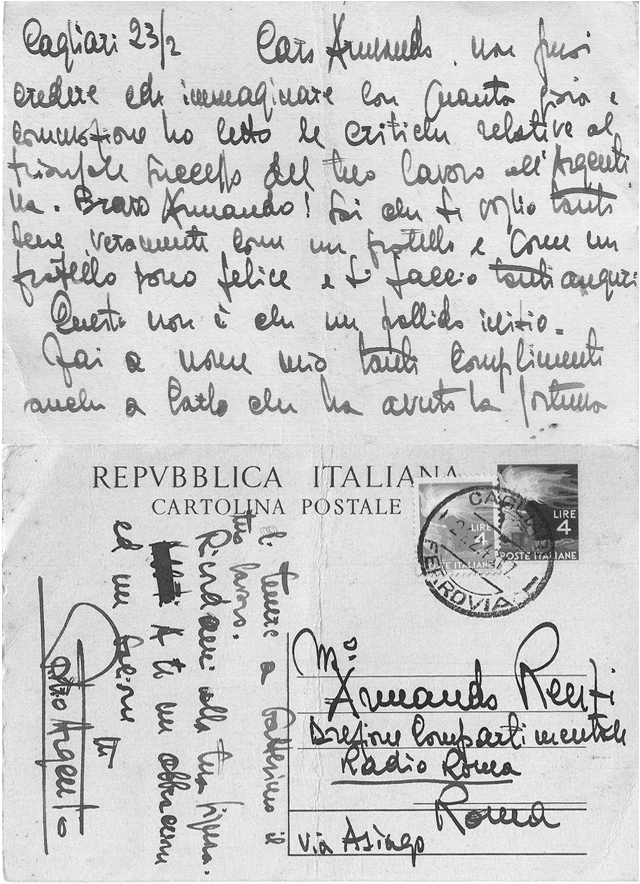 Cagliari 23/2 Caro Armando, non puoi
credere ed immaginare con quanta gioia e
commozione ho letto le critiche relative al
trionfale successo del tuo lavoro all'Argenti
na. Bravo Armando! Sai che ti voglio tanto
bene veramente come un fratello e come un
fratello sono felice e ti faccio tanti auguri
Questo non è che un pallido inizio.
Fai a nome mio tanti complimenti
anche a Carlo che ha avuto la fortuna
REPVBBLICA ITALIANA
CARTOLINA POSTALE
LIRE
4
POSTE ITALIANE
LIRE
4
POSTE ITALIANE
CAGLI
FERROVIA
di tenere a battesimo il
tuo lavoro.
Ricordami alla tua
A te un abbraccio
ed un
tuo
Argento
M.o
Armando Renzi
Direzione Compartimentale
Radio Roma
Roma
Via Asiago